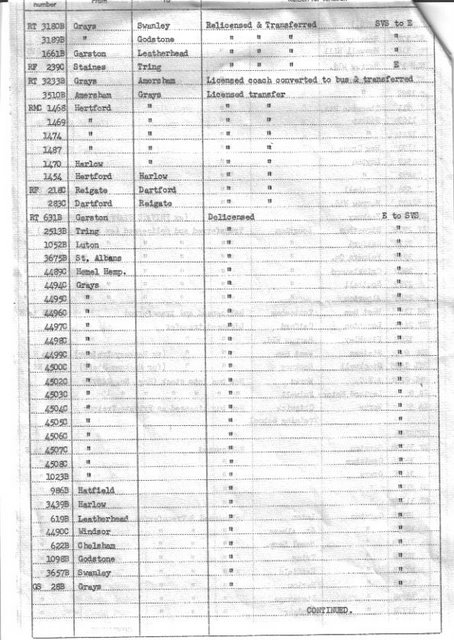 number From To
RT 3180B Grays Swanley Relicensed & Transferred SVS to E
3189B " Godstone " " " "
1661B Garston Leatherhead " " " "
RF 239C Staines Tring " " " E
RT 3233B Grays Amersham Licensed coach converted to bus & transferred
3510B Amersham Grays Licensed transfer
RMC 1468 Hertford " " "
1469 " " " "
1474 " " " "
1487 " " " "
1470 Harlow " " "
1454 Hertford Harlow " "
RF 218C Reigate Dartford " "
283C Dartford Reigate " "
RT 631B Garston Delicensed E to SVS
2513B Tring " "
1052B Luton " "
3675B St. Albans " "
4489C Hemel Hemp. " "
4494C Grays " "
4495C " " "
4496C " " "
4497C " " "
4498C " " "
4499C " " "
4500C " " "
4502C " " "
4503C " " "
4504C " " "
4505C " " "
4506C " " "
4507C " " "
4508C " " "
1023B " " "
986B Hatfield " "
3439B Harlow " "
619B Leatherhead " "
4490C Windsor " "
622B Chelsham " "
1098B Godstone " "
3657B Swanley " "
GS 28B Grays " "
CONTINUED.